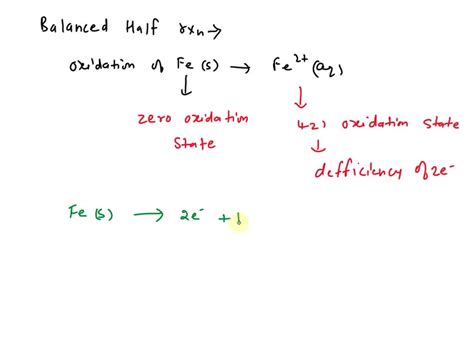 Balanced Half rxn →
oxidation of Fe (s) → Fe²⁺ (aq)
↓ ↓
zero oxidation (+2) oxidation state
State ↓
defficiency of 2e⁻
Fe (s) → 2e⁻ +